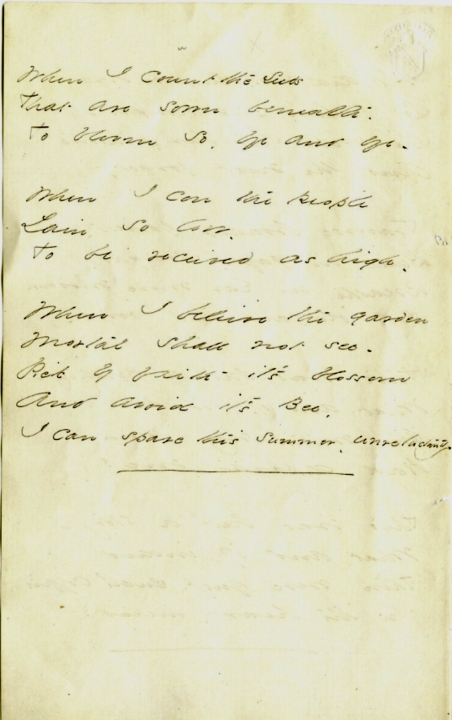 When I count the seeds
That are sown beneath.
To bloom so, by and by.
When I con the people
Lain so low.
To be received as high.
When I believe the garden
Mortal shall not see.
Pick by faith its blossom
And avoid its Bee.
I can spare this summer, unreluctantly.